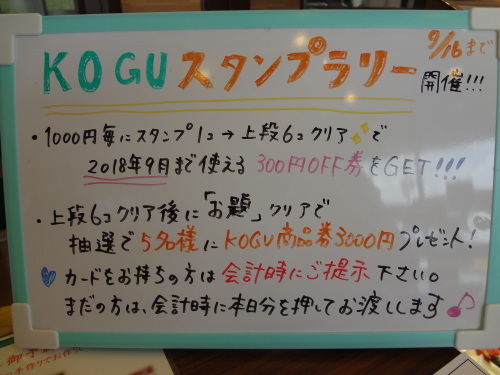 KOGUスタンプラリー
9/16まで
開催!!!
・1000円毎にスタンプ1コ→上段6コクリアで
2018年9月まで使える300円OFF券をGET!!!
・上段6コクリア後に「お題」クリアで
抽選で5名様にKOGU商品券3000円プレゼント!
カードをお持ちの方は会計時にご提示下さい。
まだの方は、会計時に本日分を押してお渡しします♪